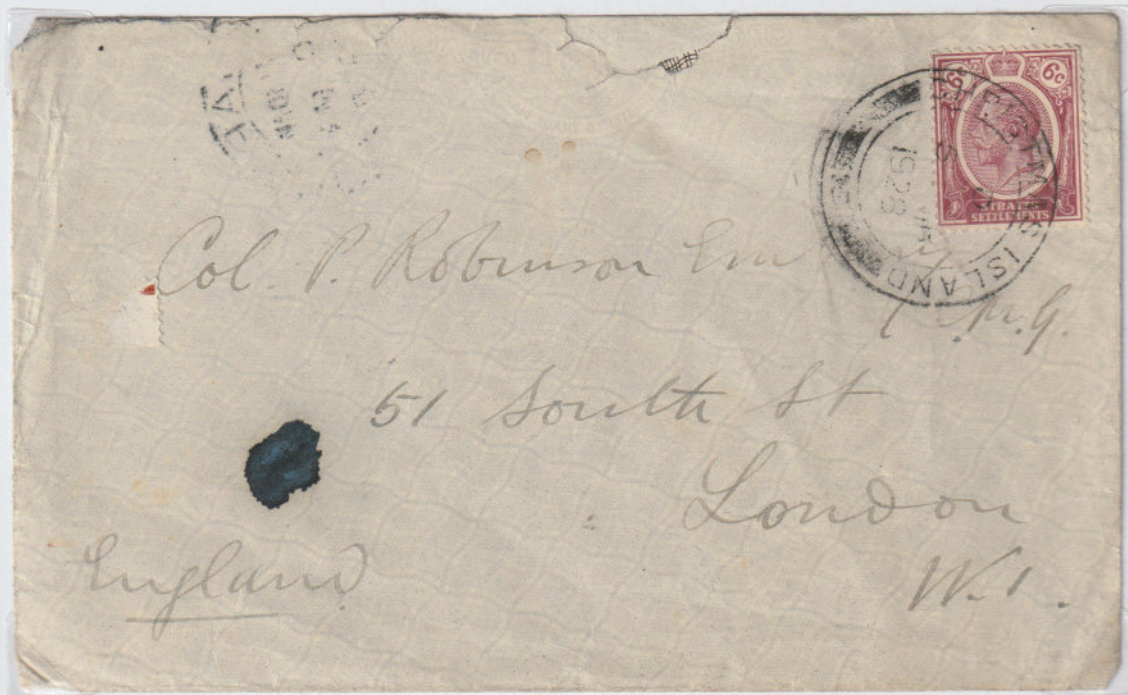 6c 6c
STRAITS
SETTLEMENTS
CHRISTMAS ISLAND
1928
Col. P. Robinson
C.M.G.
51 South St
London
W.1.
England